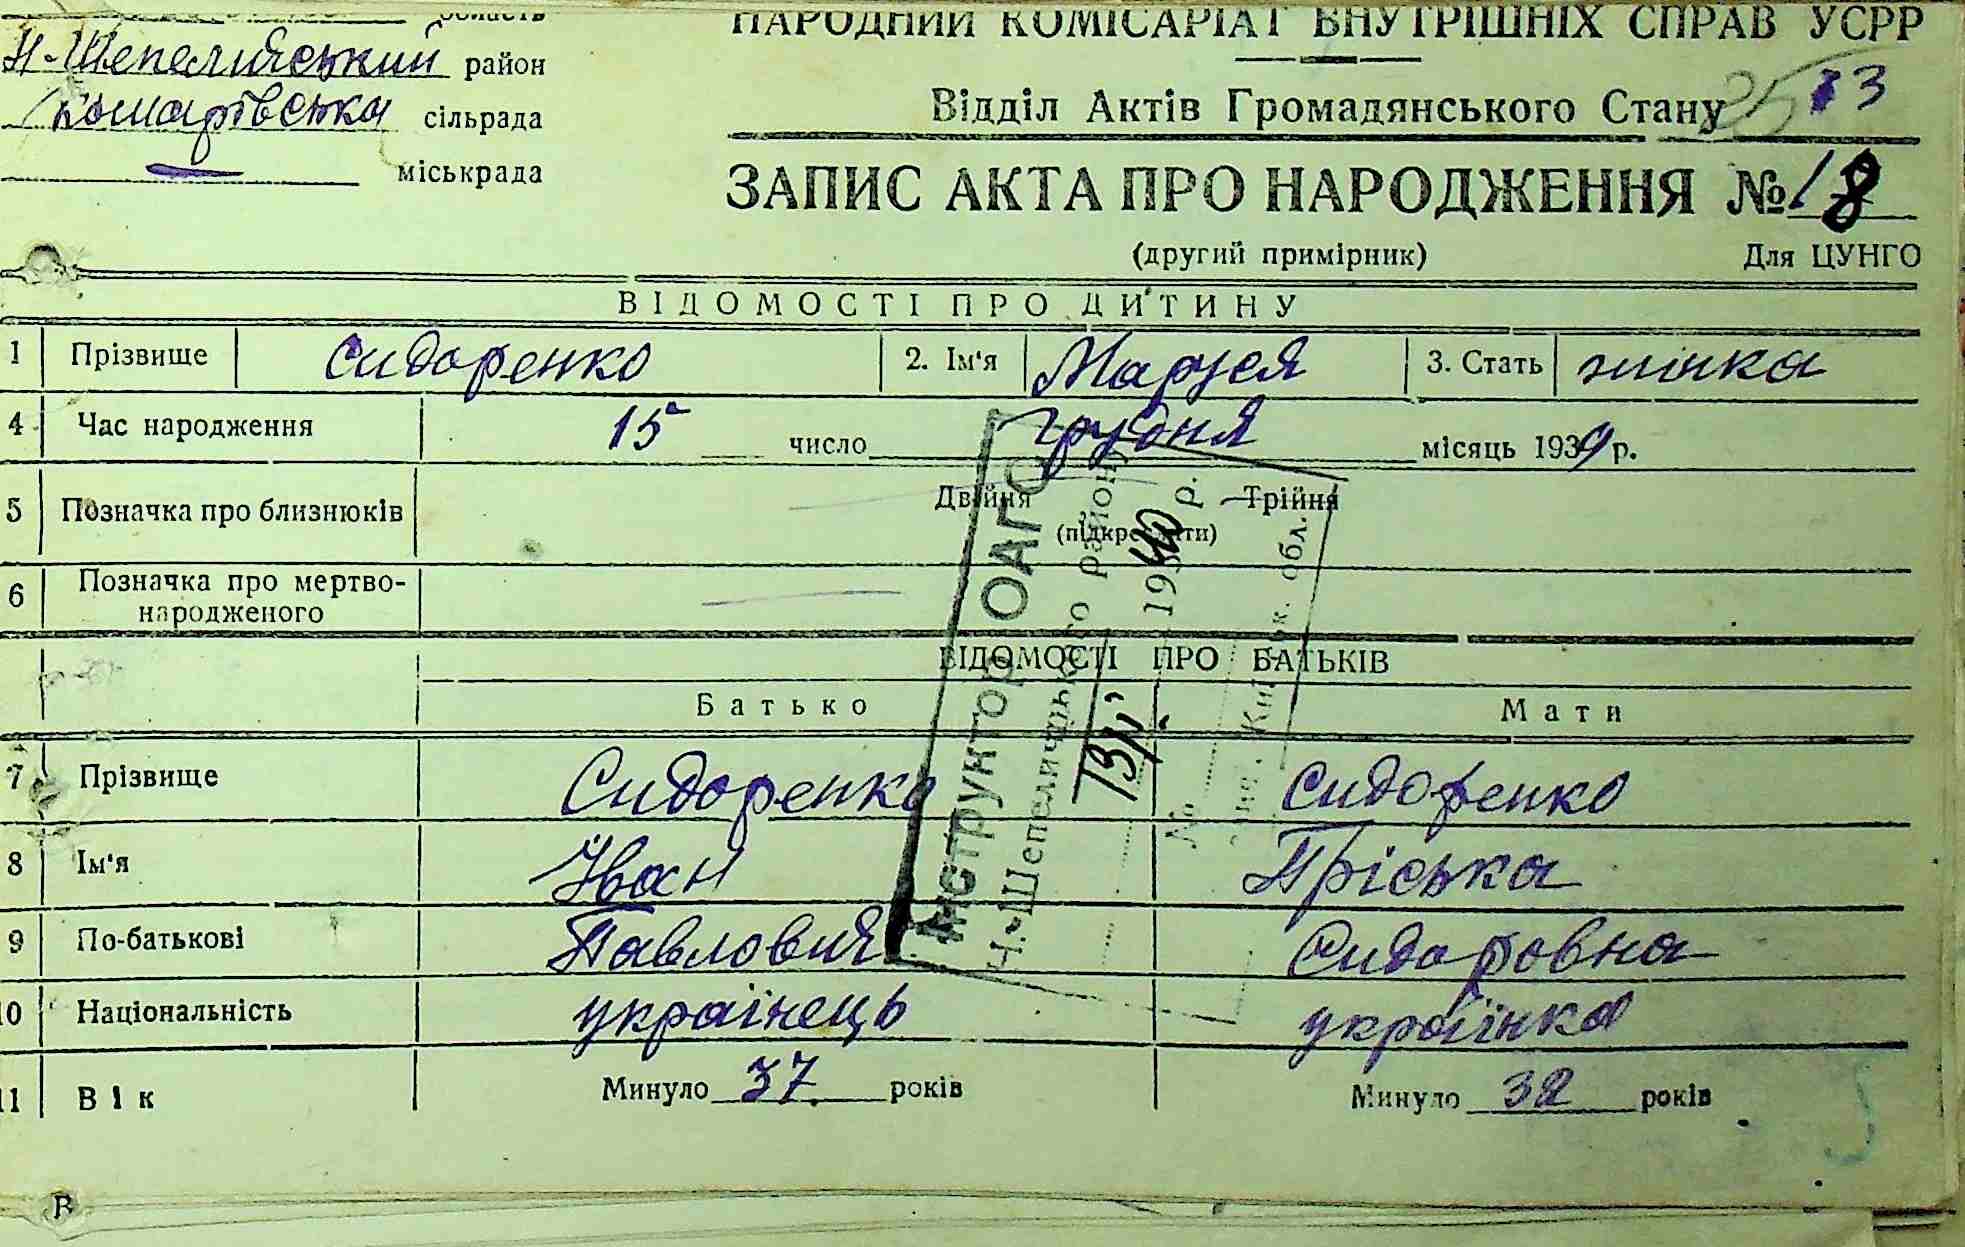 область
Н-Шепелицький район
Комарівська сільрада
міськрада
НАРОДНИЙ КОМІСАРІАТ ВНУТРІШНІХ СПРАВ УСРР
Відділ Актів Громадянського Стану
25 13
ЗАПИС АКТА ПРО НАРОДЖЕННЯ № 18
(другий примірник) Для ЦУНГО
ВІДОМОСТІ ПРО ДИТИНУ
1 Прізвище Сидоренко 2. Ім'я Маруся 3. Стать жінка
4 Час народження 15 число грудня місяць 1939 р.
5 Позначка про близнюків Двійня Трійня
(підкреслити)
6 Позначка про мертво-
народженого
ВІДОМОСТІ ПРО БАТЬКІВ
Батько Мати
7 Прізвище Сидоренко Сидоренко
8 Ім'я Іван Пріська
9 По-батькові Павлович Сидоровна
10 Національність українець українка
11 Вік Минуло 37 років Минуло 32 років
Інструктор ОАГС
Н.-Шепелицького району
13/IV 1940 р.
№
Київськ. обл.
В